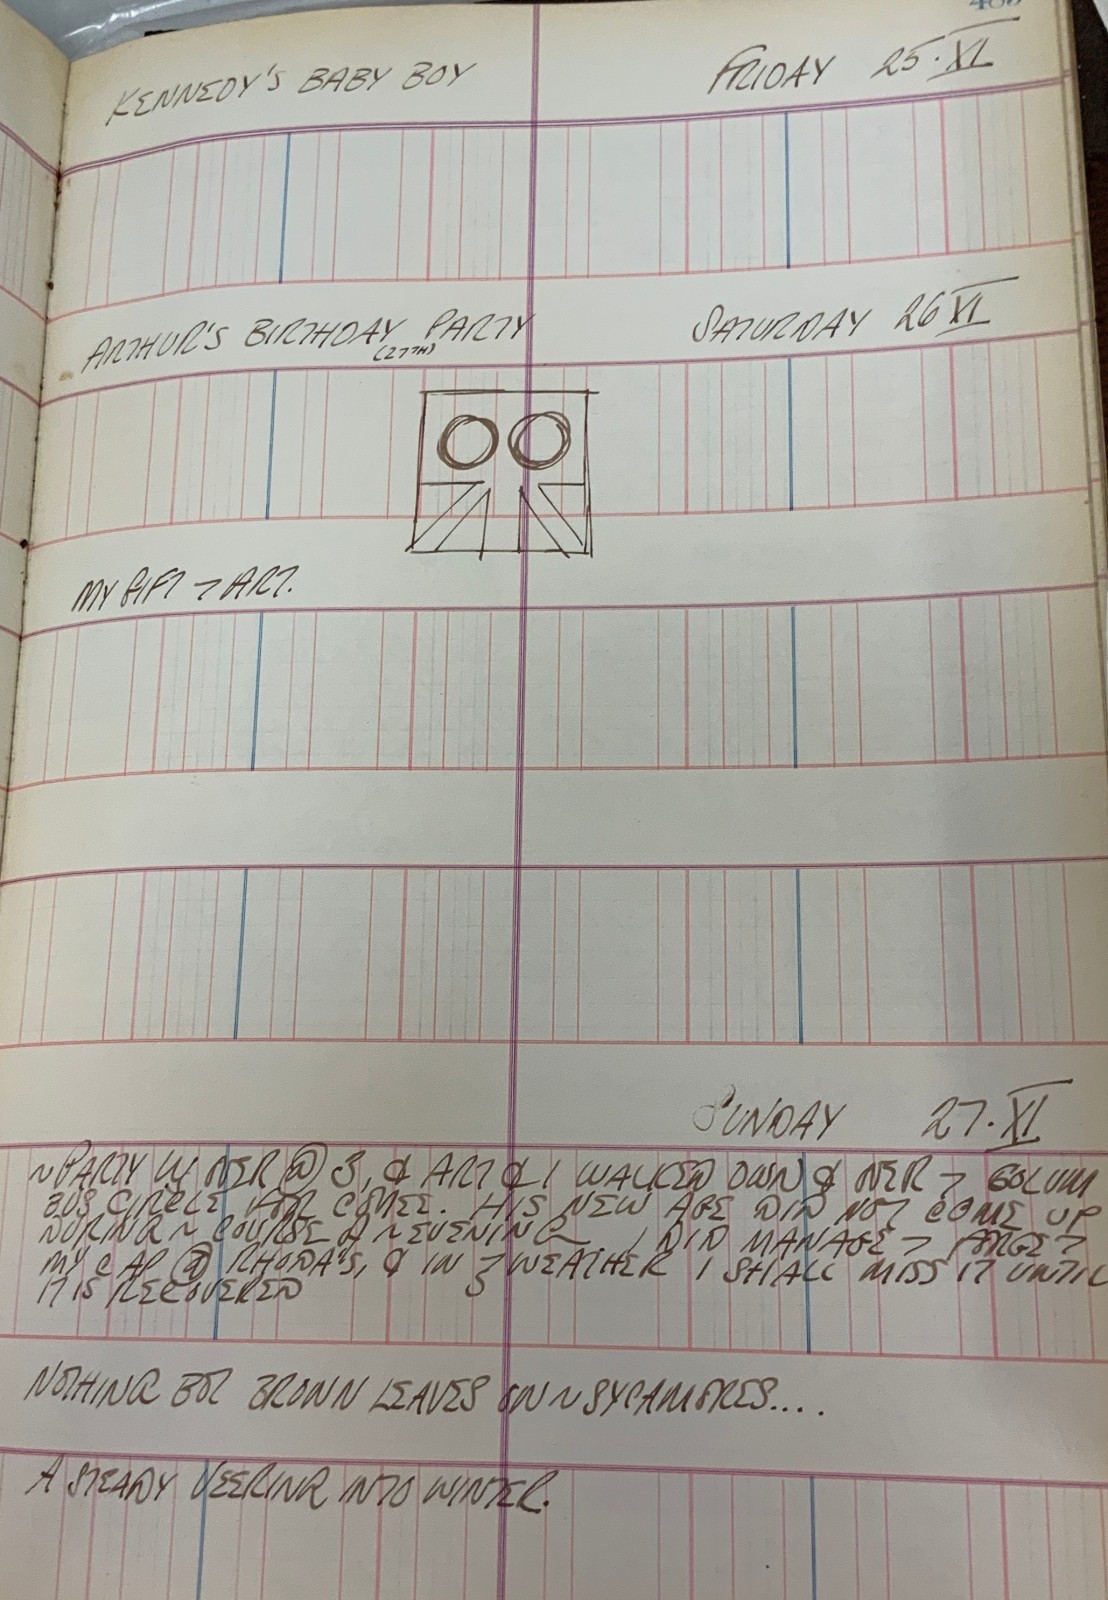 KENNEDY'S BABY BOY FRIDAY 25·XI
ARTHUR'S BIRTHDAY PARTY SATURDAY 26 XI
(27TH)
MY GIFT → ART.
SUNDAY 27·XI
~ PARTY WAS OVER @ 3, & ART & I WALKED DOWN & OVER → COLUM
BUS CIRCLE FOR COFFEE. HIS NEW AGE DID NOT COME UP
DURING ~ COURSE OF ~ EVENING I DID MANAGE → FORGET
MY CAP @ RHODA'S, & IN WEATHER I SHALL MISS IT UNTIL
IT IS RECOVERED
NOTHING BUT BROWN LEAVES ON ~ SYCAMORES....
A STEADY VEERING INTO WINTER.